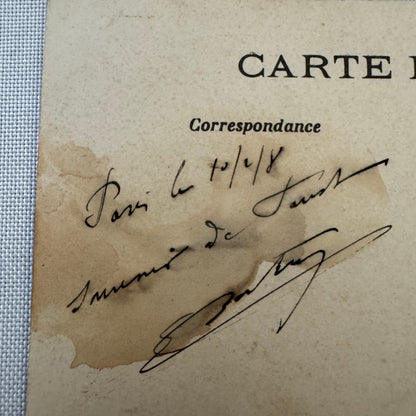 CARTE
Correspondance
Paris le 10/2/8
Souvenir de Faust